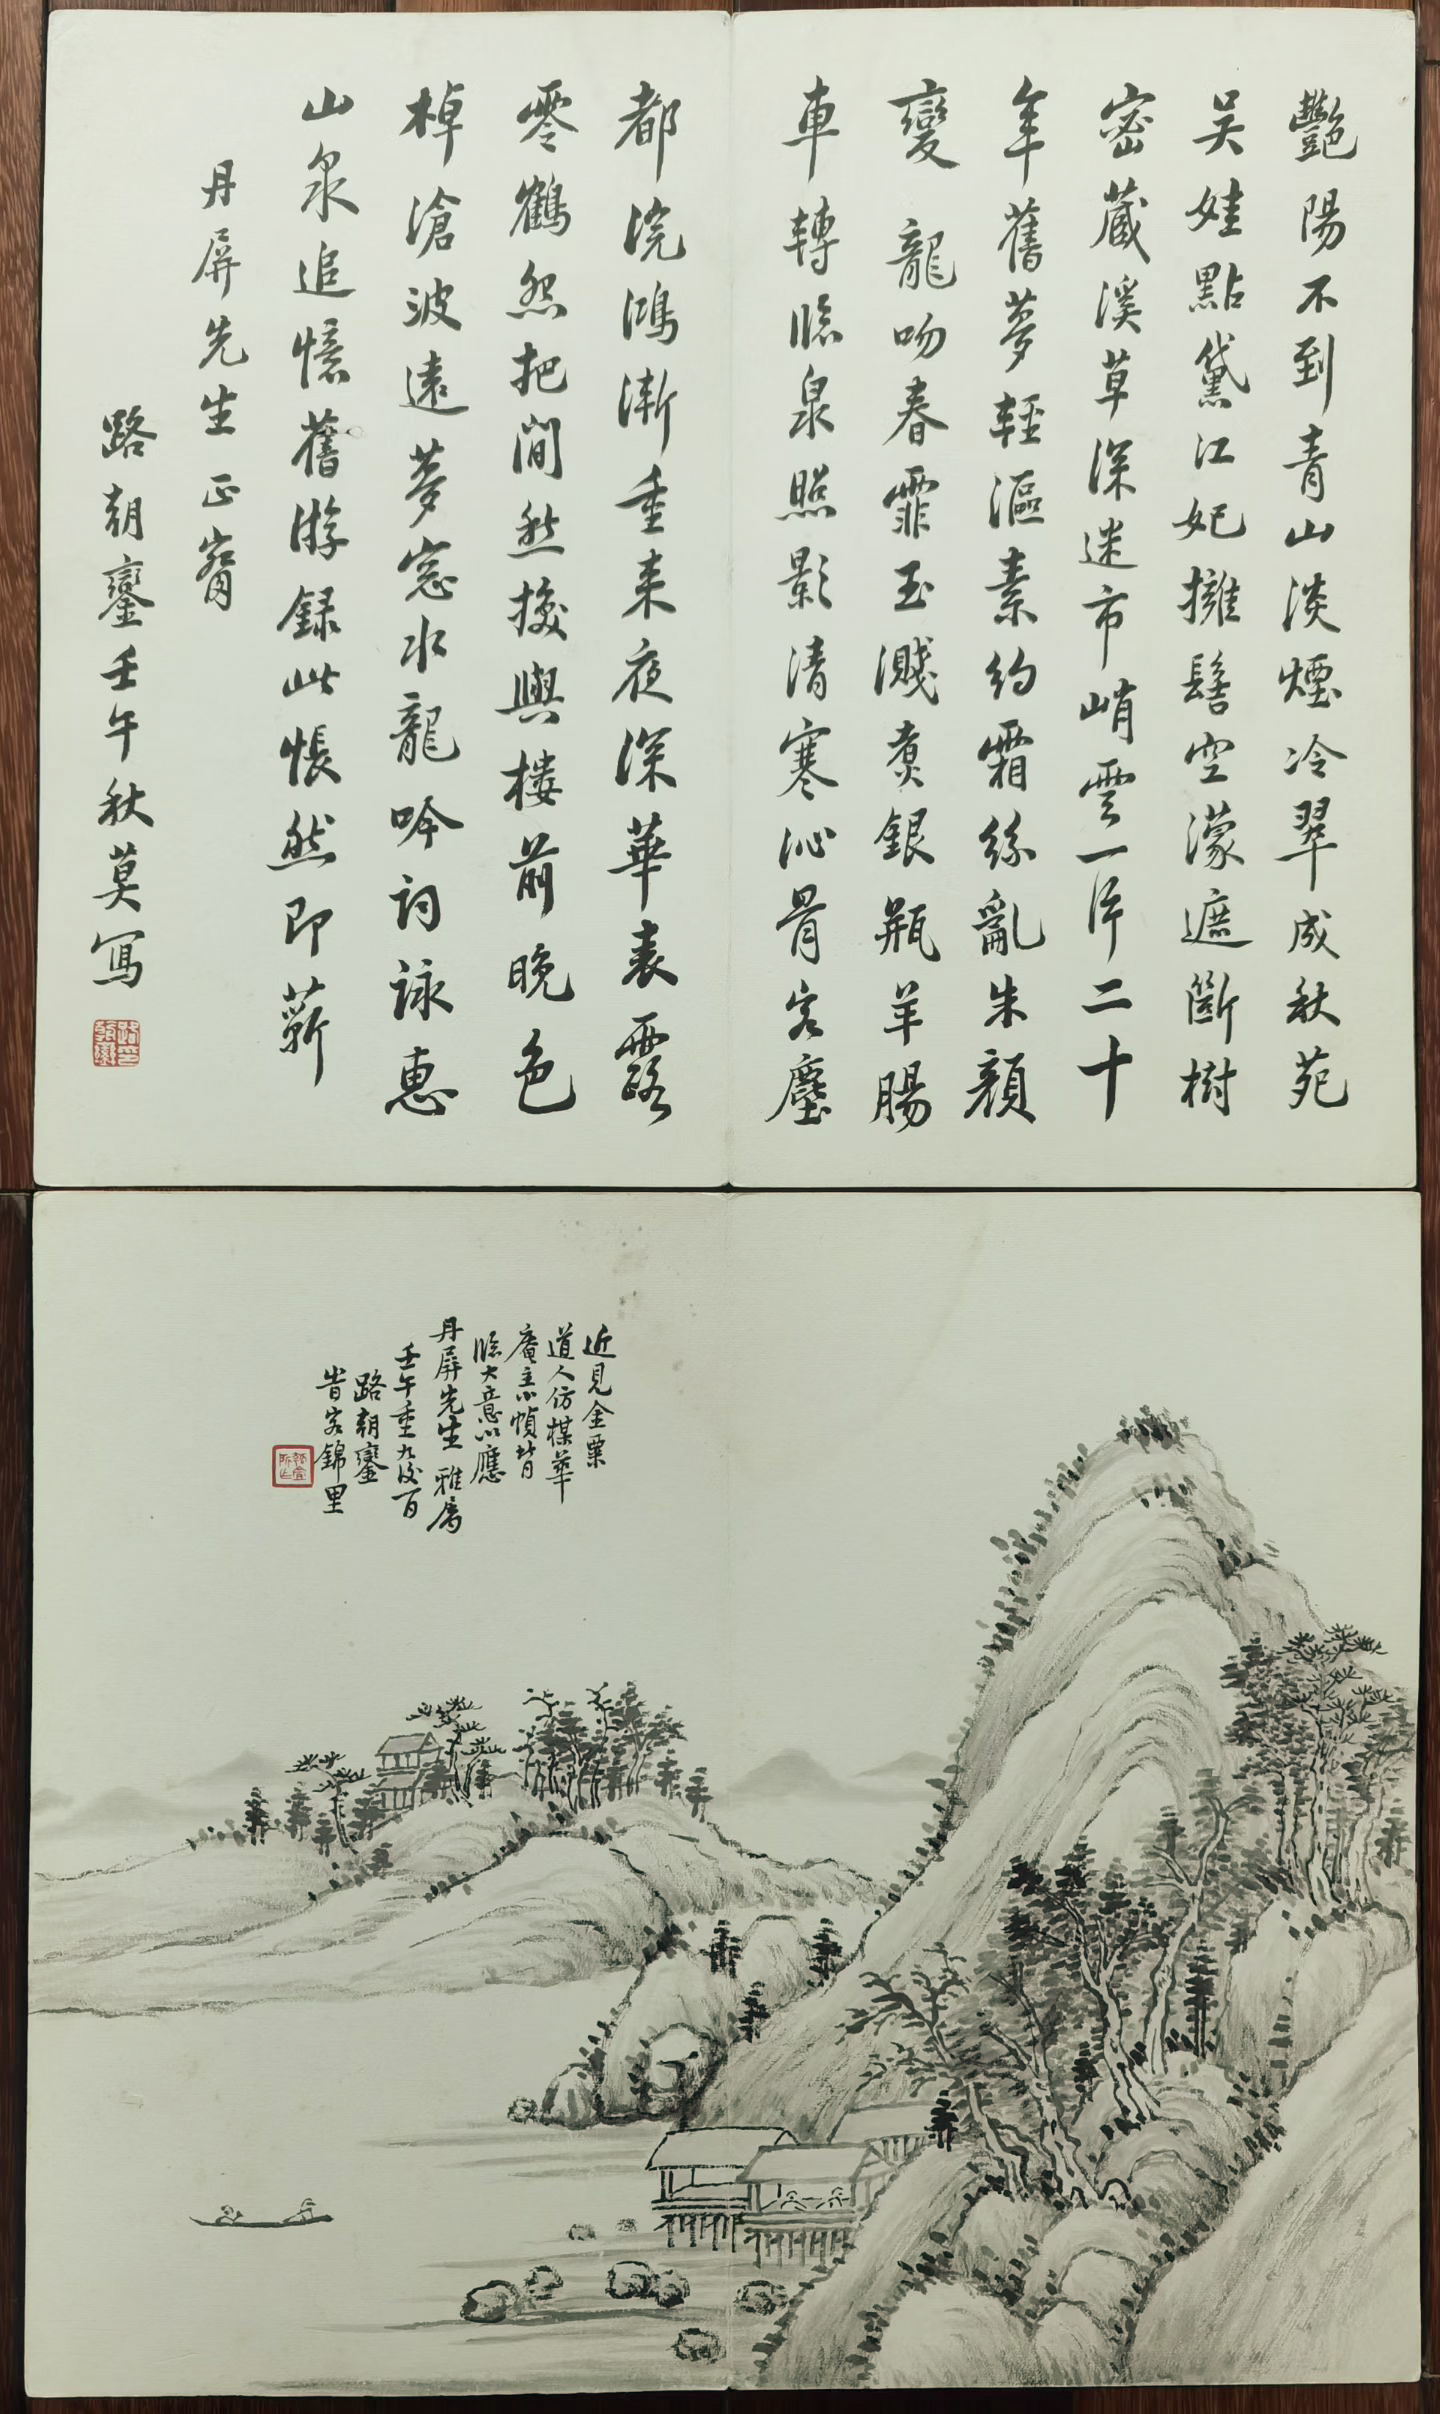 艷陽不到青山淡煙冷翠成秋苑
吳娃點黛江妃擁髻空濛遮斷樹
密藏溪草深迷市峭雲一片二十
年舊夢輕漚素約霜絲亂朱顏
變 龍吻春霏玉濺煮銀瓶羊腸
車轉臨泉照影清寒沁骨客塵
都浣鴻漸重來夜深華表露
零鶴怨把閒愁換與樓前晚色
棹滄波遠夢窻水龍吟詞詠惠
山泉追憶舊游錄此悵然即蘄
丹屏先生 正寫
路朝鑾壬午秋莫寫
近見金粟
道人仿楳華
庵主小幀背
臨大意以應
丹屏先生 雅屬
壬午重九後一日
路朝鑾
昔客錦里